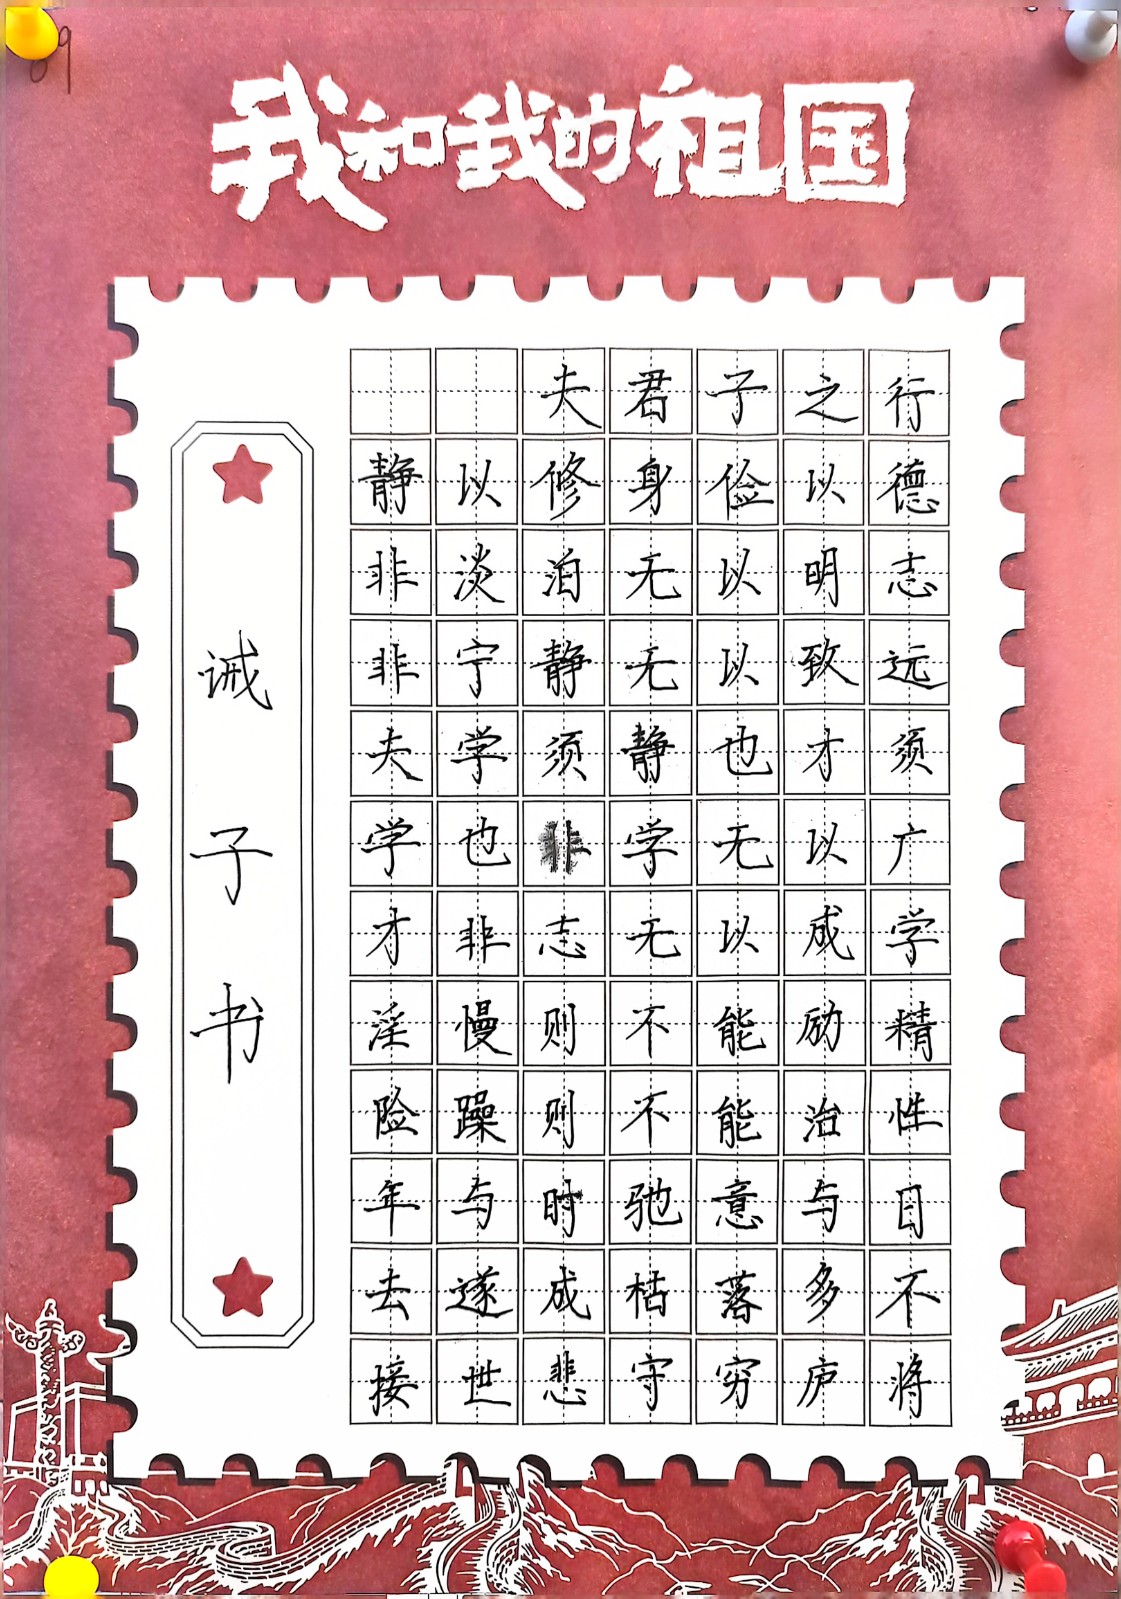 我和我的祖国
诫子书
夫君子之行
静以修身俭以德
非淡泊无以明志
非宁静无以致远
夫学须静也才须
学也非学无以广
才非志无以成学
淫慢则不能励精
险躁则不能治性
年与时驰意与日
去遂成枯落多不
接世悲守穷庐将